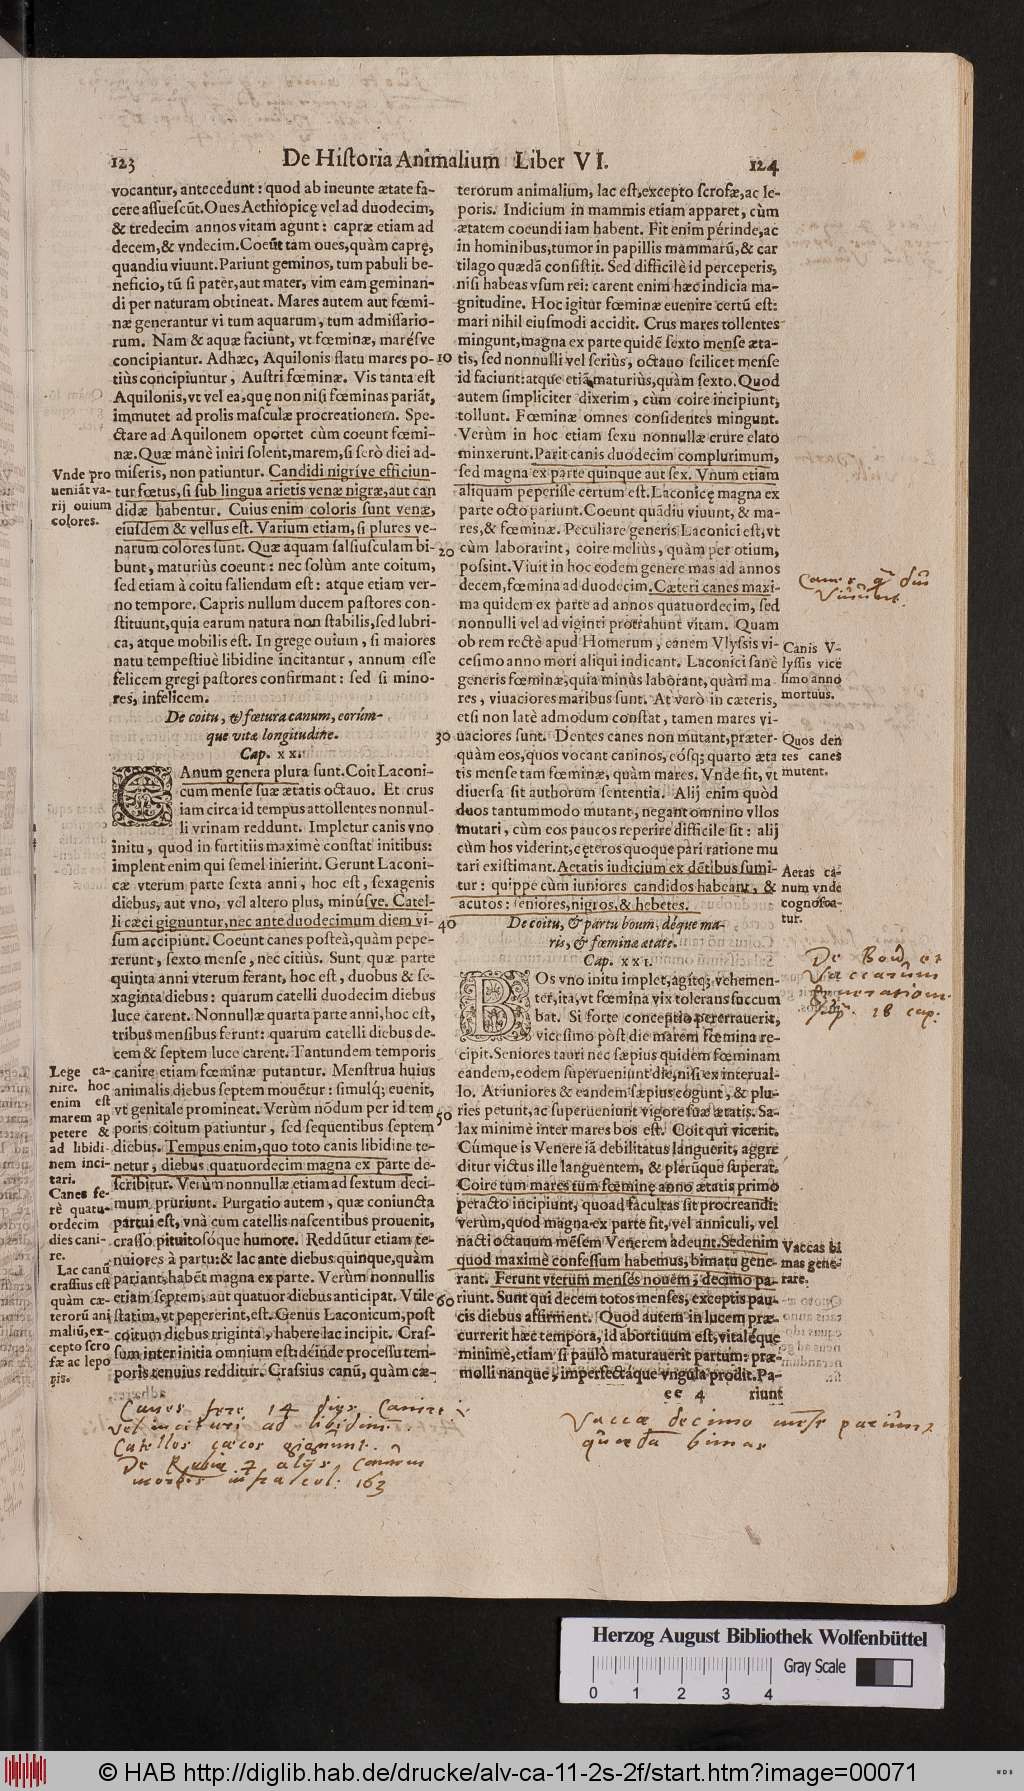 123
De Historia Animalium Liber VI.
124
vocantur, antecedunt: quod ab ineunte ætate fa-
cere assuescūt. Oues Aethiopicę vel ad duodecim,
& tredecim annos vitam agunt: capræ etiam ad
decem, & vndecim. Coeūt tam oues, quàm caprę,
quandiu viuunt. Pariunt geminos, tum pabuli be-
neficio, tū si pater, aut mater, vim eam geminan-
di per naturam obtineat. Mares autem aut fœmi-
næ generantur vi tum aquarum, tum admissario-
rum. Nam & aquæ faciunt, vt fœminæ, marésve
concipiantur. Adhæc, Aquilonis flatu mares po-
tiùs concipiuntur, Austri fœminæ. Vis tanta est
Aquilonis, vt vel ea, quę non nisi fœminas pariāt,
immutet ad prolis masculæ procreationem. Spe-
ctare ad Aquilonem oportet cùm coeunt fœmi-
næ. Quæ manè iniri solent, marem, si serò diei ad-
miseris, non patiuntur. Candidi nigríve efficiun-
tur fœtus, si sub lingua arietis venæ nigræ, aut can
didæ habentur. Cuius enim coloris sunt venæ,
eiusdem & vellus est. Varium etiam, si plures ve-
narum colores sunt. Quæ aquam salsiusculam bi-
bunt, maturiùs coeunt: nec solùm ante coitum,
sed etiam à coitu saliendum est: atque etiam ver-
no tempore. Capris nullum ducem pastores con-
stituunt, quia earum natura non stabilis, sed lubri-
ca, atque mobilis est. In grege ouium, si maiores
natu tempestiuè libidine incitantur, annum esse
felicem gregi pastores confirmant: sed si mino-
res, infelicem.
Vnde pro
ueniāt va-
rij ouium
colores.
De coitu, & fœtura canum, eorúm-
que vitæ longitudine.
Cap. xx.
CAnum genera plura sunt. Coit Laconi-
cum mense suæ ætatis octauo. Et crus
iam circa id tempus attollentes nonnul-
li vrinam reddunt. Impletur canis vno
initu, quod in furtitiis maximè constat initibus:
implent enim qui semel inierint. Gerunt Laconi-
cæ vterum parte sexta anni, hoc est, sexagenis
diebus, aut vno, vel altero plus, minúsve. Catel-
li cæci gignuntur, nec ante duodecimum diem vi-
sum accipiunt. Coeunt canes posteà, quàm pepe-
rerunt, sexto mense, nec citiùs. Sunt quæ parte
quinta anni vterum ferant, hoc est, duobus & se-
xaginta diebus: quarum catelli duodecim diebus
luce carent. Nonnullæ quarta parte anni, hoc est,
tribus mensibus ferunt: quarum catelli diebus de-
cem & septem luce carent. Tantundem temporis
canire etiam fœminæ putantur. Menstrua huius
animalis diebus septem mouētur: simulq; euenit,
vt genitale promineat. Verùm nōdum per id tem
poris coitum patiuntur, sed sequentibus septem
diebus. Tempus enim, quo toto canis libidine te-
netur, diebus quatuordecim magna ex parte de-
scribitur. Verùm nonnullæ etiam ad sextum deci-
mum pruriunt. Purgatio autem, quæ coniuncta
partui est, vnà cum catellis nascentibus prouenit,
crasso pituitosóque humore. Reddūtur etiam te-
nuiores à partu: & lac ante diebus quinque, quàm
pariant, habēt magna ex parte. Verùm nonnullis
etiam septem, aut quatuor diebus anticipat. Vtile
statim, vt pepererint, est. Genus Laconicum, post
coitum diebus triginta, habere lac incipit. Cras-
sum inter initia omnium est: deinde processu tem-
poris tenuius redditur. Crassius canū, quàm cæ-
Lege ca-
nire. hoc
enim est
marem ap
petere &
ad libidi-
nem inci-
tari.
Canes fe-
rè quatu-
ordecim
dies cani-
re.
Lac canū
crassius est
quàm cæ-
terorū ani
maliū, ex-
cepto scro
fæ ac lepo
ris.
Canes fere 14 dies canire
vel incitari ad libidinem.
Catellos cæcos gignunt.
De Rabie & alijs canum
morbis infra col: 163
10
20
30
40
50
60
terorum animalium, lac est, excepto scrofæ, ac le-
poris. Indicium in mammis etiam apparet, cùm
ætatem coeundi iam habent. Fit enim périnde, ac
in hominibus, tumor in papillis mammarū, & car
tilago quædā consistit. Sed difficilè id perceperis,
nisi habeas vsum rei: carent enim hæc indicia ma-
gnitudine. Hoc igitur fœminæ euenire certū est:
mari nihil eiusmodi accidit. Crus mares tollentes
mingunt, magna ex parte quidē sexto mense æta-
tis, sed nonnulli vel seriùs, octauo scilicet mense
id faciunt: atque etiā maturiùs, quàm sexto. Quod
autem simpliciter dixerim, cùm coire incipiunt,
tollunt. Fœminæ omnes considentes mingunt.
Verùm in hoc etiam sexu nonnullæ crure elato
minxerunt. Parit canis duodecim complurimum,
sed magna ex parte quinque aut sex. Vnum etiam
aliquam peperisse certum est. Laconicę magna ex
parte octo pariunt. Coeunt quādiu viuunt, & ma-
res, & fœminæ. Peculiare generis Laconici est, vt
cùm laborarint, coire meliùs, quàm per otium,
possint. Viuit in hoc eodem genere mas ad annos
decem, fœmina ad duodecim. Cæteri canes maxi-
ma quidem ex parte ad annos quatuordecim, sed
nonnulli vel ad viginti protrahunt vitam. Quam
ob rem rectè apud Homerum, canem Vlyssis vi-
cesimo anno mori aliqui indicant. Laconici sanè
generis fœminæ, quia minùs laborant, quàm ma-
res, viuaciores maribus sunt. At verò in cæteris,
etsi non latè admodum constat, tamen mares vi-
uaciores sunt. Dentes canes non mutant, præter-
quàm eos, quos vocant caninos, eósq; quarto æta
tis mense tam fœminæ, quàm mares. Vnde fit, vt
diuersa sit authorum sententia. Alij enim quòd
duos tantummodo mutant, negant omnino vllos
mutari, cùm eos paucos reperire difficile sit: alij
cùm hos viderint, cęteros quoque pari ratione mu
tari existimant. Aetatis iudicium ex dētibus sumi-
tur: quippe cùm iuniores candidos habeant, &
acutos: seniores, nigros, & hebetes.
Canis V-
lyssis vice
simo anno
mortuus.
Quos den
tes canes
mutent.
Aetas ca-
num vnde
cognosca-
tur.
De coitu, & partu boum, déque ma-
ris, & fœminæ ætate.
Cap. xxi.
BOs vno initu implet, agitq; vehemen-
ter, ita, vt fœmina vix tolerans succum
bat. Si forte conceptio pererrauerit,
vicesimo pòst die marem fœmina re-
cipit. Seniores tauri nec sæpius quidem fœminam
eandem, eodem superueniunt die, nisi ex interual-
lo. At iuniores & eandem sæpius cogunt, & plu-
ries petunt, ac superueniunt vigore suæ ætatis. Sa-
lax minimè inter mares bos est. Coit qui vicerit.
Cúmque is Venere iā debilitatus languerit, aggre
ditur victus ille languentem, & plerūque superat.
Coire tum mares tum fœminę anno ætatis primo
peracto incipiunt, quoad facultas sit procreandi:
verùm, quod magna ex parte fit, vel anniculi, vel
nacti octauum mēsem Venerem adeunt. Sed enim
quod maximè confessum habemus, bimatu gene-
rant. Ferunt vterum menses nouem, decimo pa-
riunt. Sunt qui decem totos menses, exceptis pau-
cis diebus affirment. Quod autem in lucem præ-
currerit hæc tempora, id abortiuum est, vitaléque
minimè, etiam si paulò maturauerit partum: præ-
molli nanque, imperfectáque vngula prodit. Pa-
ee 4
riunt
De Boum et
Vaccarum
generatione
sup. 18 cap:
Vaccas bi
mas gene-
rare.
Vaccæ decimo mense pariunt
quædā bimæ
Herzog August Bibliothek Wolfenbüttel
Gray Scale
0 1 2 3 4
© HAB http://diglib.hab.de/drucke/alv-ca-11-2s-2f/start.htm?image=00071